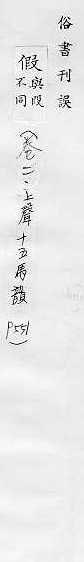 俗書刊誤
假與叚不同(卷二、上聲十五馬韻 P551)